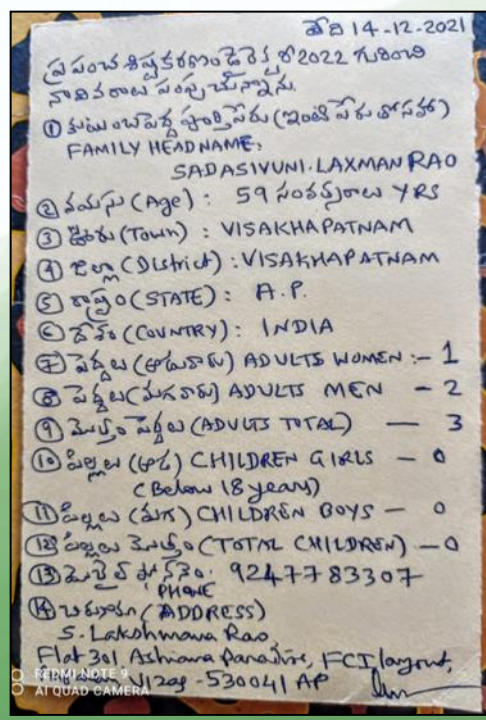 తేది 14-12-2021
ప్రపంచ శిష్టకరణం డైరెక్టరీ 2022 గురించి
నా వివరాలు పంపుచున్నాను.
① కుటుంబ పెద్ద పూర్తి పేరు (ఇంటి పేరుతో సహా)
FAMILY HEAD NAME,
SADASIVUNI. LAXMAN RAO
② వయసు (Age) : 59 సంవత్సరాలు YRS
③ ఊరు (Town) : VISAKHAPATNAM
④ జిల్లా (District) : VISAKHAPATNAM
⑤ రాష్ట్రం (STATE) : A.P.
⑥ దేశం (COUNTRY) : INDIA
⑦ పెద్దలు (ఆడువారు) ADULTS WOMEN :- 1
⑧ పెద్దలు (మగవారు) ADULTS MEN - 2
⑨ మొత్తం పెద్దలు (ADULTS TOTAL) — 3
⑩ పిల్లలు (ఆడ) CHILDREN GIRLS - 0
(Below 18 years)
⑪ పిల్లలు (మగ) CHILDREN BOYS - 0
⑫ పిల్లలు మొత్తం (TOTAL CHILDREN) - 0
⑬ మొబైల్ ఫోన్ నెం. 9247783307
PHONE
⑭ చిరునామా (ADDRESS)
S. Lakshmana Rao,
Flat 301 Ashiana Paradise, FCI layout,
Vizag - 530041 AP
REDMI NOTE 9
AI QUAD CAMERA